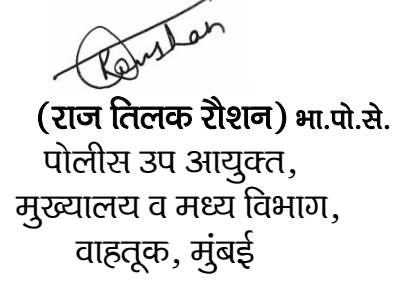 (राज तिलक रौशन) भा.पो.से.
पोलीस उप आयुक्त,
मुख्यालय व मध्य विभाग,
वाहतूक, मुंबई